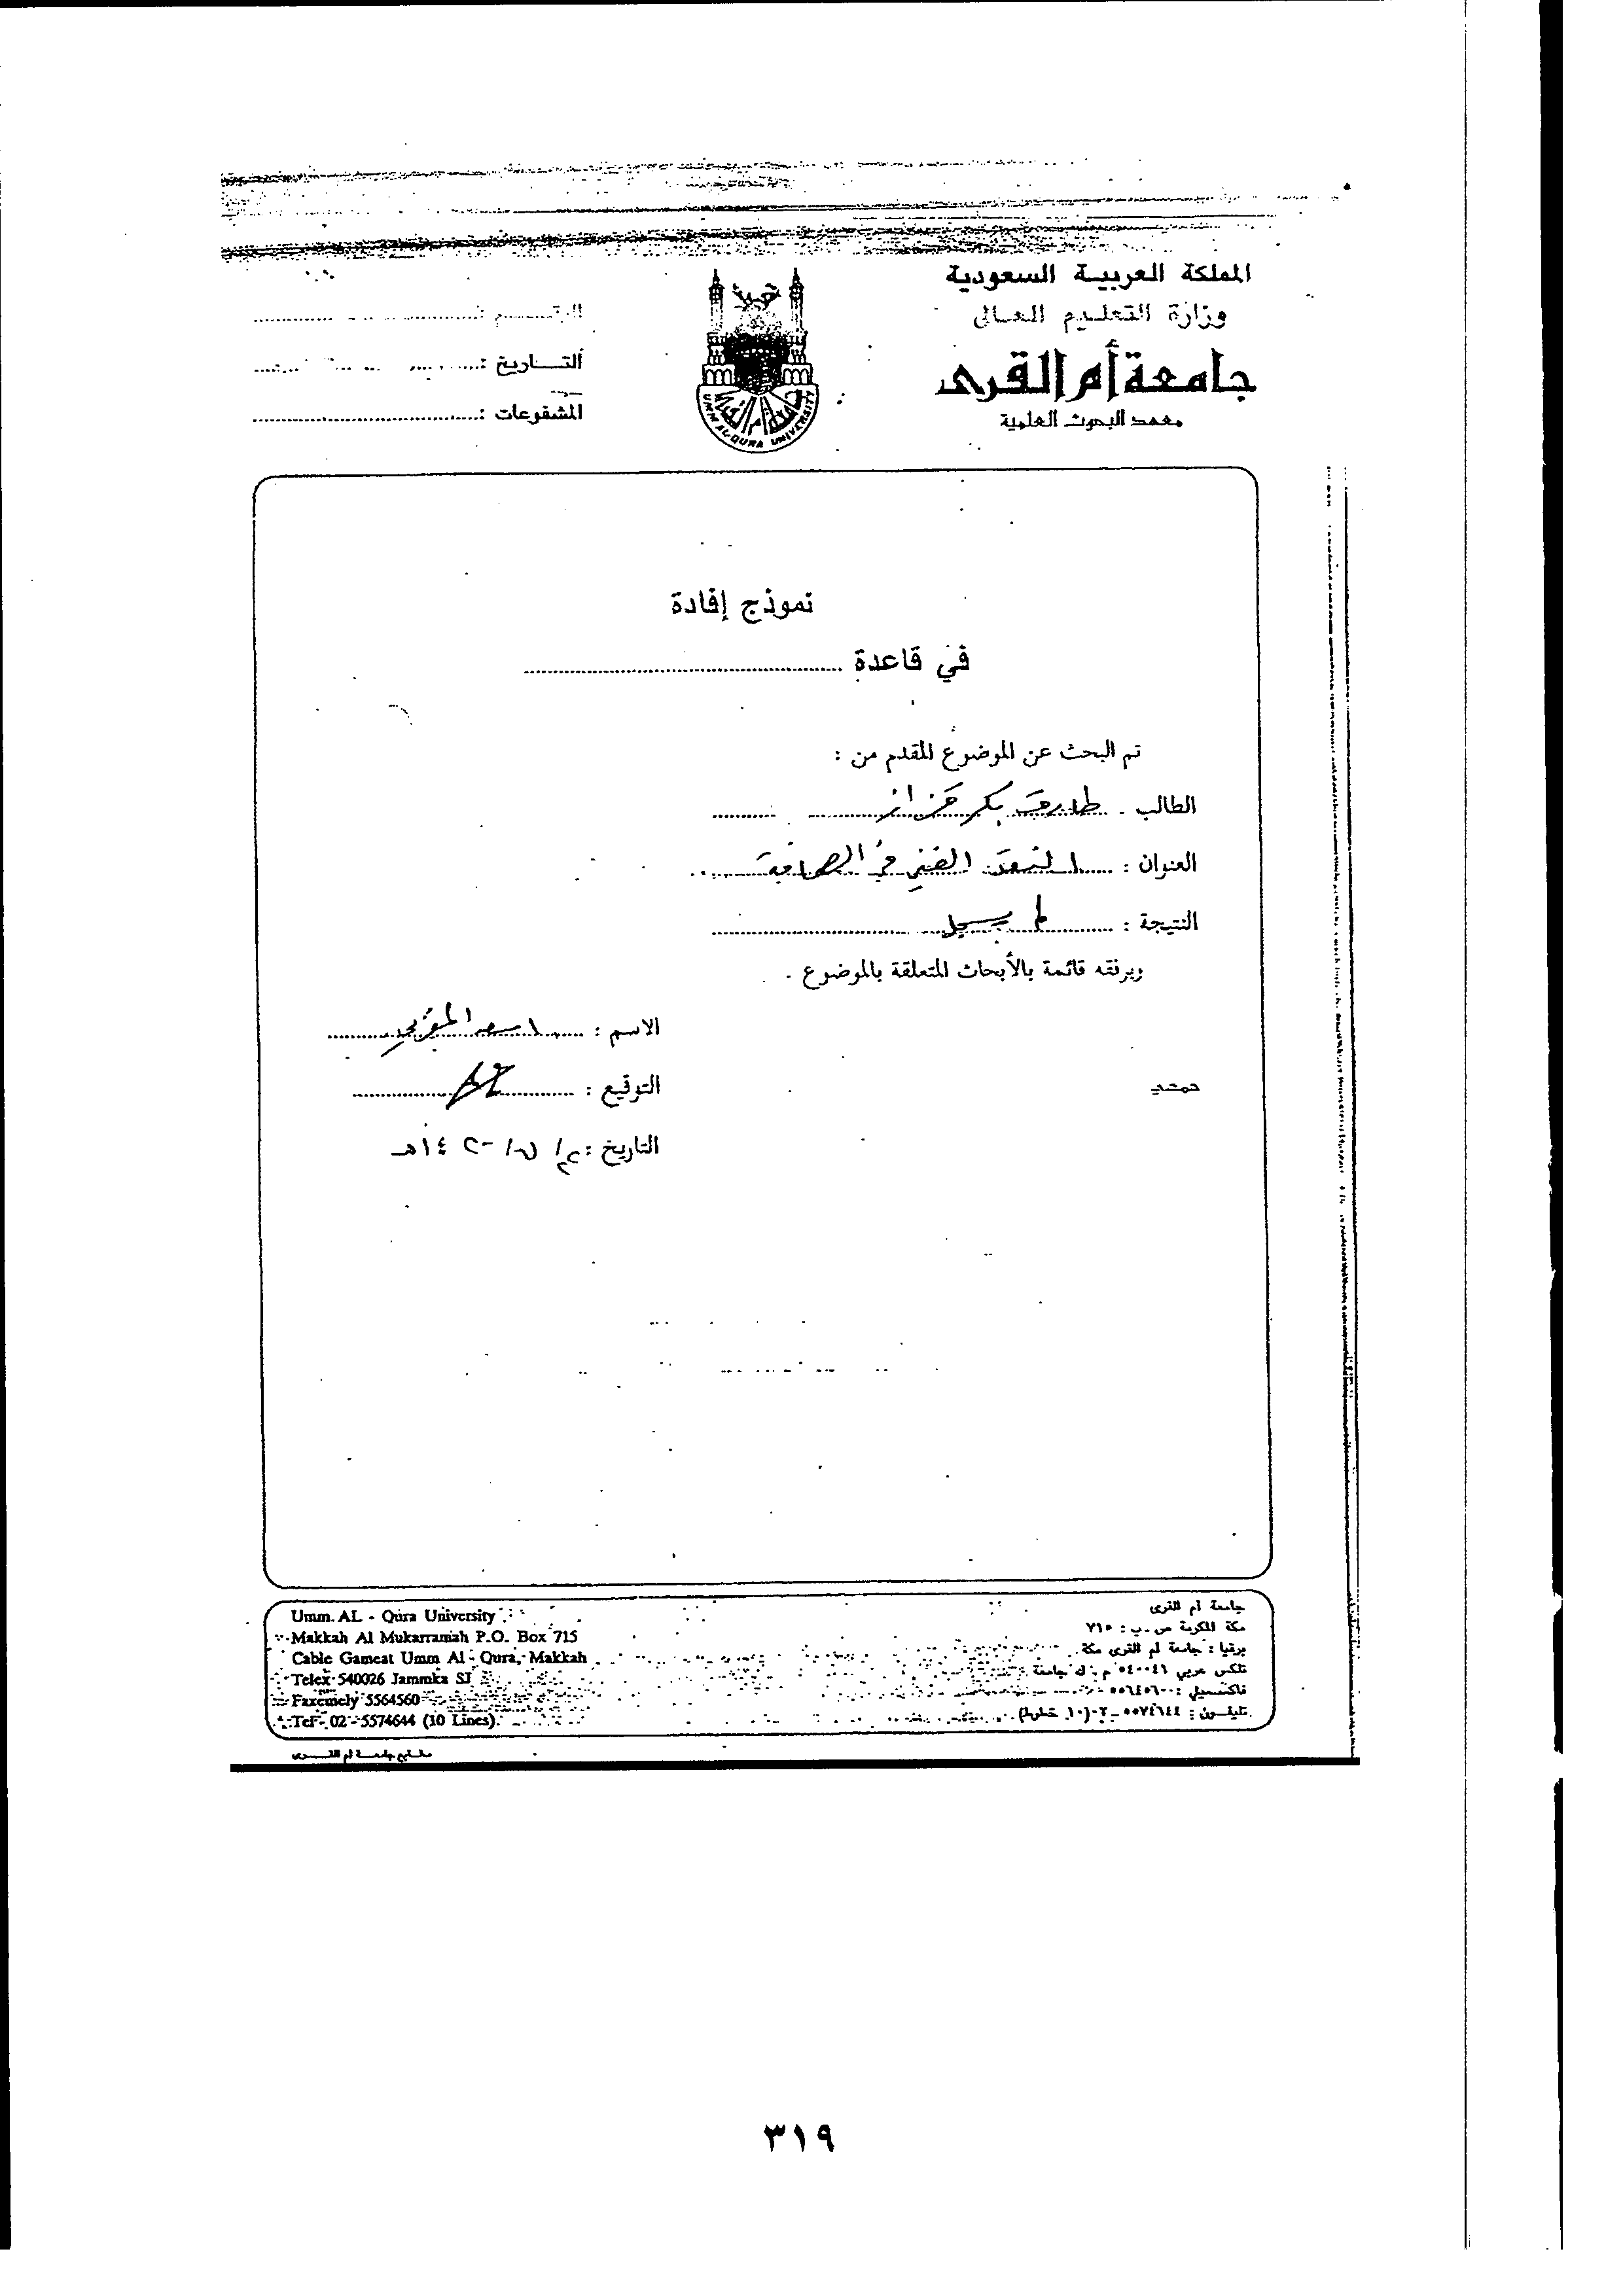 المملكة العربية السعودية
وزارة التعليم العالي
جامعة أم القرى
معهد البحوث العلمية
الرقم :
التاريخ :
المشفوعات :
UMM AL-QURA UNIVERSITY
نموذج إفادة
في قاعدة
تم البحث عن الموضوع المقدم من :
الطالب - طارق بكر قزاز
العنوان : النقد الفني في الصحافة
النتيجة : لم يسجل
ويرفقه قائمة بالأبحاث المتعلقة بالموضوع .
الاسم :
التوقيع :
حمتدي
التاريخ : ١٤٢٠هـ
Umm. AL - Qura University
Makkah Al Mukarramah P.O. Box 715
Cable Gameat Umm Al - Qura, Makkah
Telex 540026 Jammka SJ
Faxemely 5564560
Tel - 02 - 5574644 (10 Lines)
جامعة أم القرى
مكة المكرمة ص . ب : ٧١٥
برقيا : جامعة أم القرى مكة
تلكس عربي ٥٤٠٠٤١ م . ك جامعة
فاكسميلي : ٥٥٦٤٥٦٠
تليفون : ٥٥٧٤٦٤٤ - ٠٢ (١٠ خطوط)
مطابع جامعة أم القرى
٣١٩